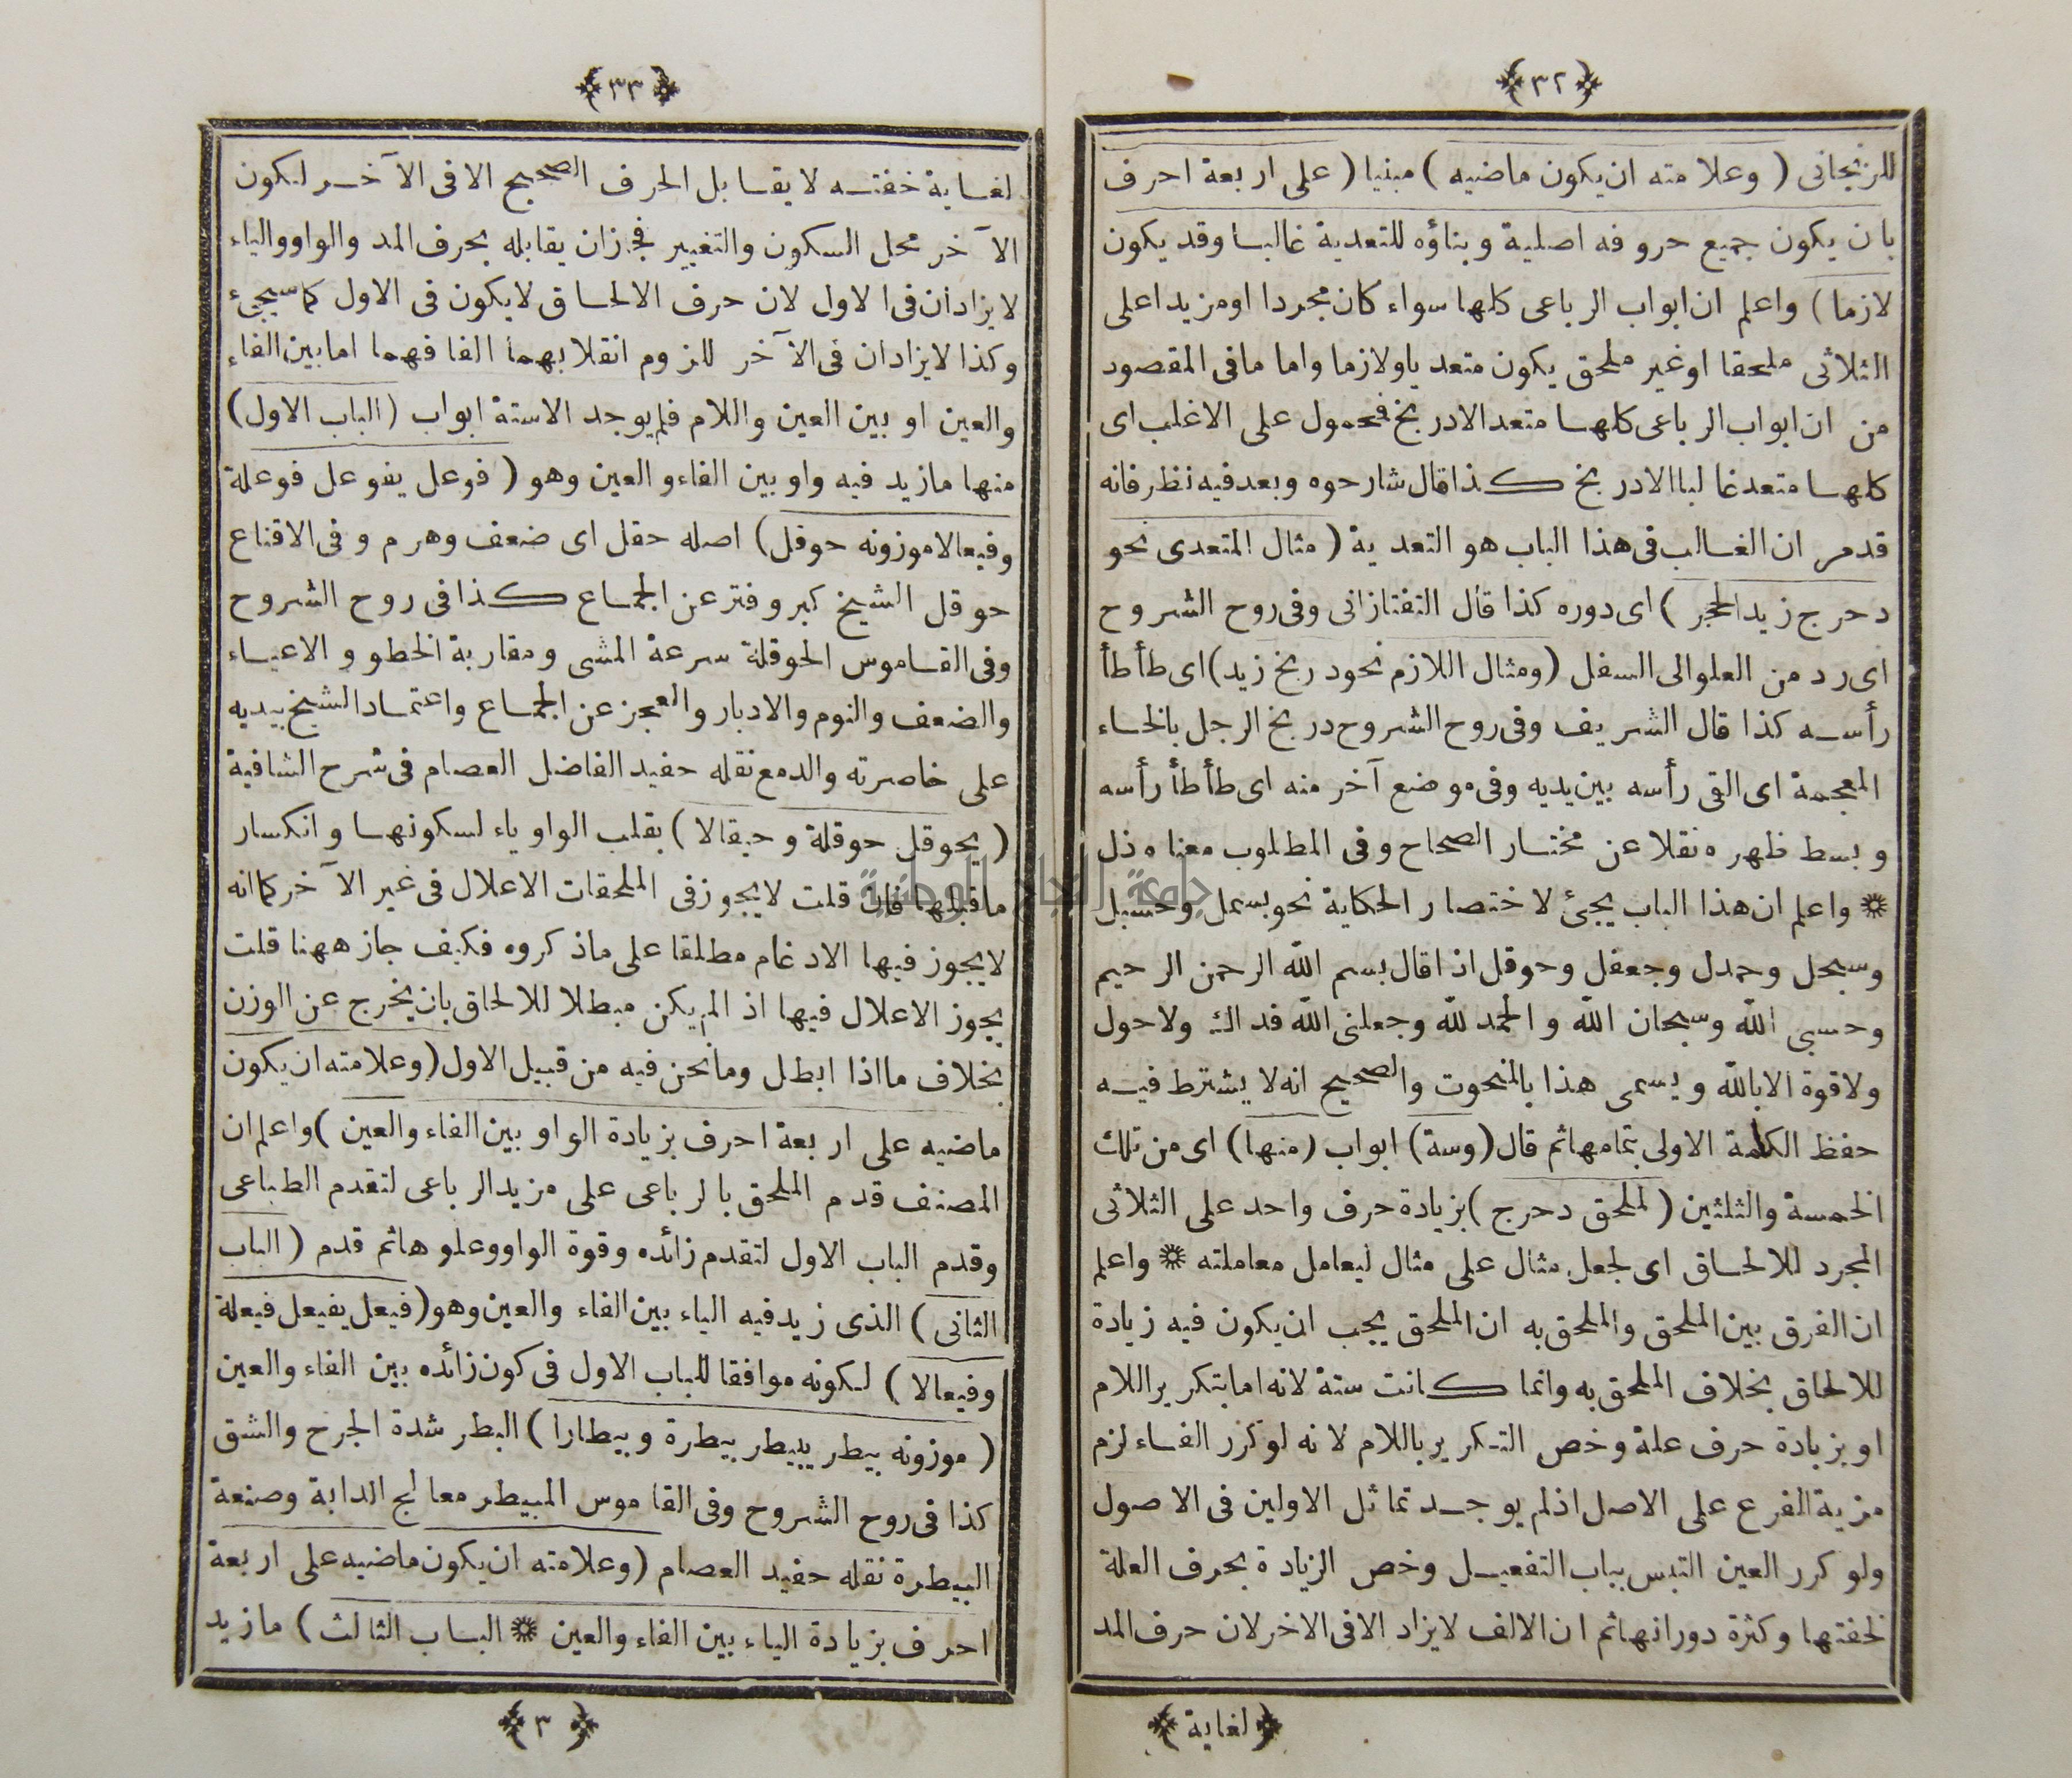 ﴿٣٢﴾
للزنجانى ( وعلامته ان يكون ماضيه ) مبنيا ( على اربعة احرف
بان يكون جميع حروفه اصلية وبناؤه للتعدية غالبا وقد يكون
لازما ) واعلم ان ابواب الرباعى كلها سواء كان مجردا او مزيدا على
الثلاثى ملحقا او غير ملحق يكون متعديا ولازما واما ما فى المقصود
من ان ابواب الرباعى كلها متعد الا دربخ فمحمول على الاغلب اى
كلها متعد غالبا الا دربخ كذا قال شارحوه وبعد فيه نظر فانه
قد مر ان الغالب فى هذا الباب هو التعدية ( مثال المتعدى نحو
دحرج زيد الحجر ) اى دوره كذا قال التفتازانى وفى روح الشروح
اى رد من العلو الى السفل ( ومثال اللازم نحو دربخ زيد ) اى طأطأ
رأسه كذا قال الشريف وفى روح الشروح دربخ الرجل بالخاء
المعجمة اى القى رأسه بين يديه وفى موضع آخر منه اى طأطأ رأسه
وبسط ظهره نقلا عن مختار الصحاح وفى المطلوب معناه ذل
* واعلم ان هذا الباب يجئ لاختصار الحكاية نحو بسمل وحسبل
وسبحل وحمدل وجعفل وحوقل اذا قال بسم الله الرحمن الرحيم
وحسبى الله وسبحان الله والحمد لله وجعلنى الله فداك ولا حول
ولا قوة الا بالله ويسمى هذا بالمنحوت والصحيح انه لا يشترط فيه
حفظ الكلمة الاولى بتمامها ثم قال ( وستة ) ابواب ( منها ) اى من تلك
الخمسة والثلثين ( لملحق دحرج ) بزيادة حرف واحد على الثلاثى
المجرد للالحاق اى لجعل مثال على مثال ليعامل معاملته * واعلم
ان الفرق بين الملحق والملحق به ان الملحق يجب ان يكون فيه زيادة
للالحاق بخلاف الملحق به وانما كانت ستة لانه اما بتكرير اللام
او بزيادة حرف علة وخص التكرير باللام لانه لو كرر الفاء لزم
مزية الفرع على الاصل اذ لم يوجد تماثل الاولين فى الاصول
ولو كرر العين التبس بباب التفعيل وخص الزيادة بحرف العلة
لخفتها وكثرة دورانها ثم ان الالف لا يزاد الا فى الاخر لان حرف المد
﴿لغاية﴾
﴿٣٣﴾
لغاية خفته لا يقابل الحرف الصحيح الا فى الآخر لكون
الآخر محل السكون والتغيير فجاز ان يقابله بحرف المد والواو والياء
لا يزادان فى الاول لان حرف الالحاق لا يكون فى الاول كما سيجئ
وكذا لا يزادان فى الآخر للزوم انقلابهما الفا فهما اما بين الفاء
والعين او بين العين واللام فلم يوجد الا ستة ابواب ( الباب الاول )
منها ما زيد فيه واو بين الفاء والعين وهو ( فوعل يفوعل فوعلة
وفيعالا موزونه حوقل ) اصله حقل اى ضعف وهرم وفى الاقناع
حوقل الشيخ كبر وفتر عن الجماع كذا فى روح الشروح
وفى القاموس الحوقلة سرعة المشى ومقاربة الخطو والاعياء
والضعف والنوم والادبار والعجز عن الجماع واعتماد الشيخ بيديه
على خاصرته والدمع نقله حفيد الفاضل العصام فى شرح الشافية
( يحوقل حوقلة وحيقالا ) بقلب الواو ياء لسكونها وانكسار
ما قبلها فان قلت لا يجوز فى الملحقات الاعلال فى غير الآخر كما انه
لا يجوز فيها الادغام مطلقا على ما ذكروه فكيف جاز ههنا قلت
يجوز الاعلال فيها اذا لم يكن مبطلا للالحاق بان يخرج عن الوزن
بخلاف ما اذا ابطل وما نحن فيه من قبيل الاول ( وعلامته ان يكون
ماضيه على اربعة احرف بزيادة الواو بين الفاء والعين ) واعلم ان
المصنف قدم الملحق بالرباعى على مزيد الرباعى لتقدم الطباعى
وقدم الباب الاول لتقدم زائده وقوة الواو وعلوها ثم قدم ( الباب
الثانى ) الذى زيد فيه الياء بين الفاء والعين وهو ( فيعل يفيعل فيعلة
وفيعالا ) لكونه موافقا للباب الاول فى كون زائده بين الفاء والعين
( موزونه بيطر يبيطر بيطرة وبيطارا ) البطر شدة الجرح والشق
كذا فى روح الشروح وفى القاموس المبيطر معالج الدابة وصنعة
البيطرة نقله حفيد العصام ( وعلامته ان يكون ماضيه على اربعة
احرف بزيادة الياء بين الفاء والعين * الباب الثالث ) ما زيد
﴿٣﴾
جامعة النجاح الوطنية